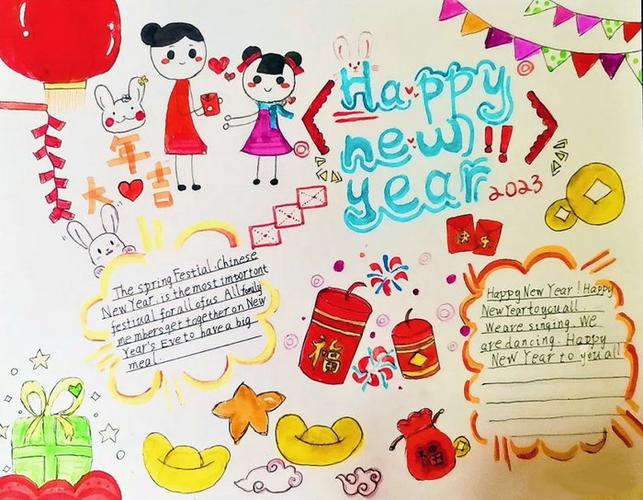 Happy
new!!
year 2023
年
大吉
The spring Festial. Chinese
New Year. is the most important
festiual for all of us. All family
members get together on New
Year's Eve to have a big
meal.
福
福
Happy New Year! Happy
New Year to you all.
We are singing. We
are dancing. Happy
New Year to you all